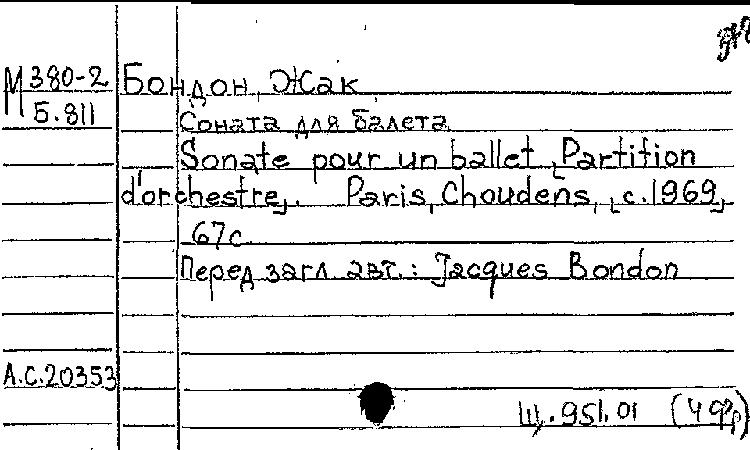 М 380-2
Б.811
Бондон, Жак
Соната для балета
Sonate pour un ballet [Partition
d'orchestre]. Paris, Choudens, [c.1969]
67с
Перед загл. авт.: Jacques Bondon
А.С.20353
Щ.951.01